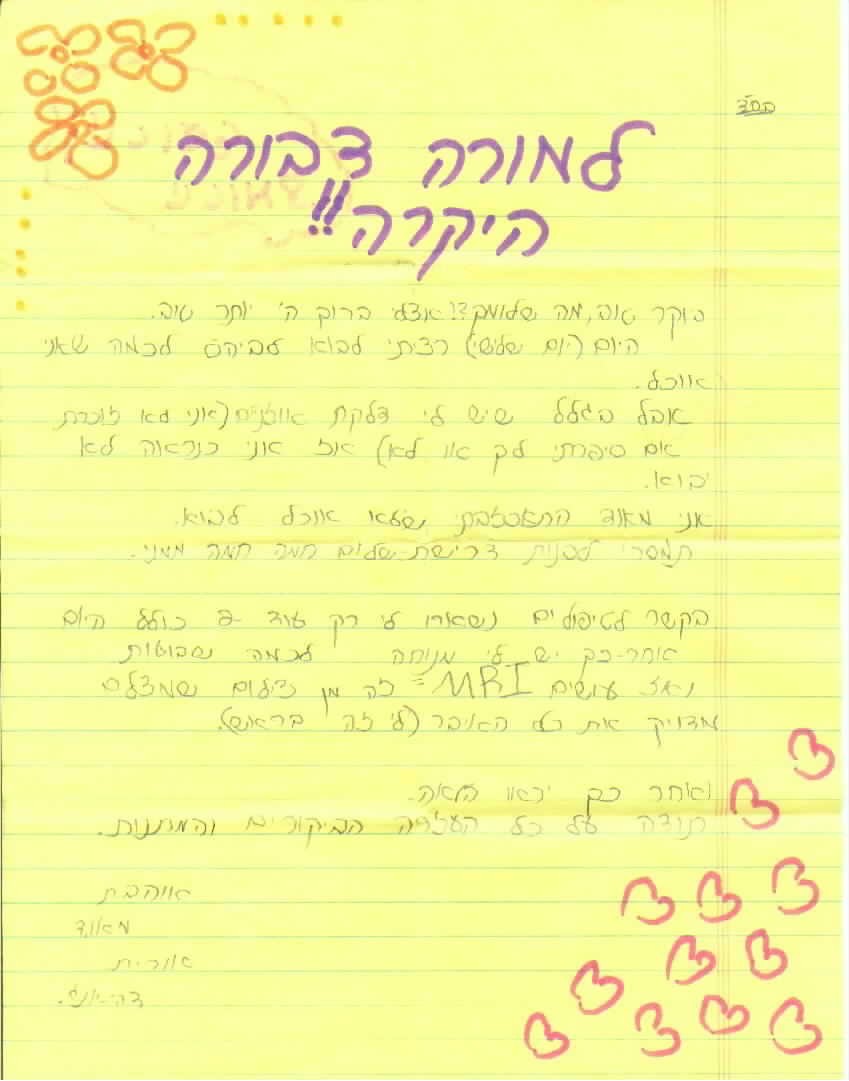 בס"ד
למורה דבורה
היקרה!!
בוקר טוב, מה שלומך?! אצלי ברוך ה' יותר טוב.
היום (יום שלישי) רציתי לבוא לביה"ס לכמה שאני
אוכל.
אבל בגלל שיש לי דלקת אוזניים (אני לא זוכרת
אם סיפרתי לך או לא) אז אני כנראה לא
יבוא.
אני מאוד התאכזבתי שלא אוכל לבוא.
תמסרי לבנות דרישת-שלום חמה חמה ממני.
בקשר לטיפולים נשארו לי רק עוד כולל היום
אחר-כך יש לי מנוחה לכמה שבועות
ואז עושים MRI = זה מן צילום שמצלם
מדויק את כל האיבר (לי זה בראש).
ואחר כך יראו הלאה.
תודה על כל העזרה הביקורים והמתנות.
אוהבת
מאוד
אורית